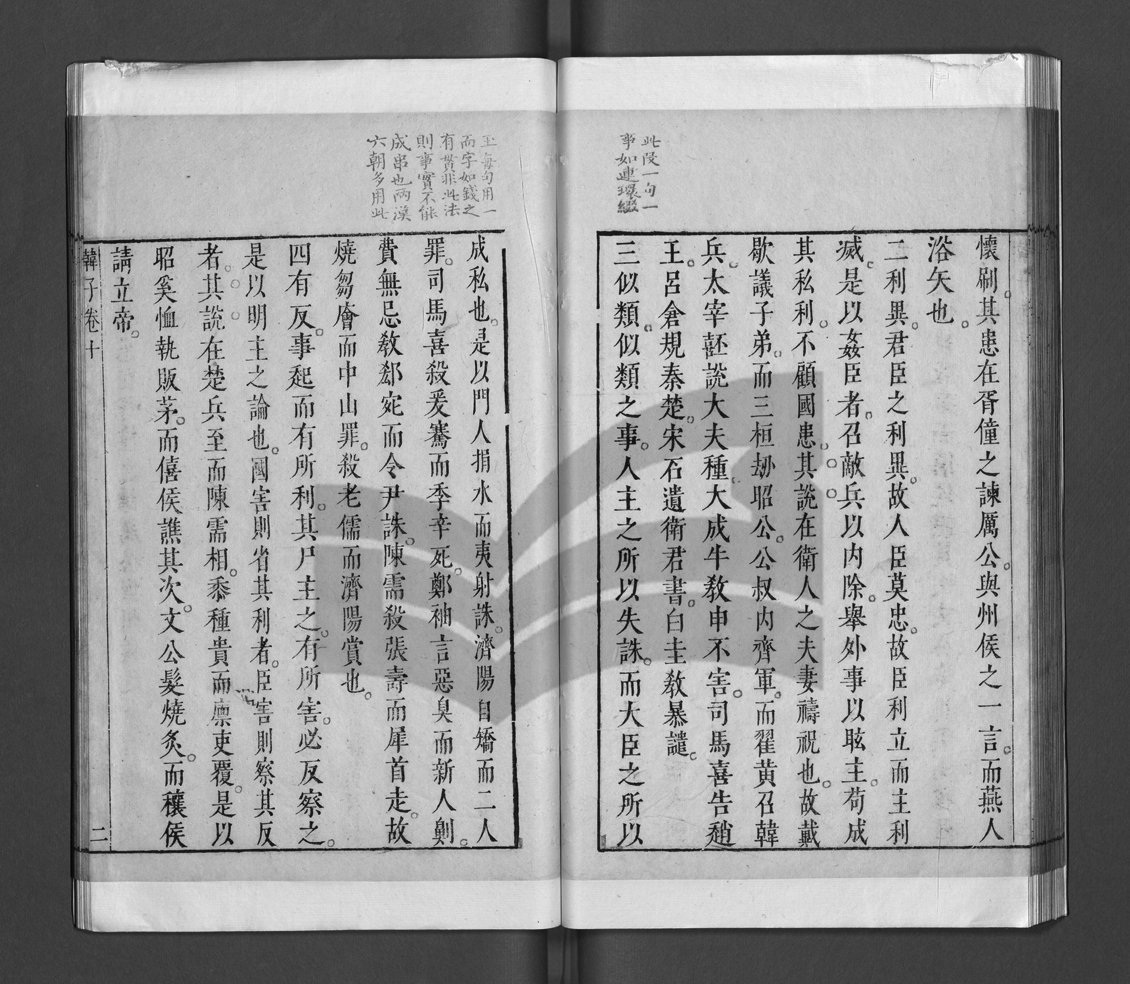 此段一句一
事如連環綴
懷刷。其患在胥僮之諫厲公。與州侯之一言。而燕人
浴矢也。
二利異。君臣之利異。故人臣莫忠。故臣利立而主利
滅。是以姦臣者。召敵兵以內除。舉外事以眩主。苟成
其私利。不顧國患。其說在衛人之夫妻禱祝也。故戴
歇議子弟。而三桓劫昭公。公叔內齊軍。而翟黃召韓
兵。太宰嚭說大夫種。大成牛教申不害。司馬喜告趙
王。呂倉規秦楚。宋石遺衛君書。白圭教暴譴。
三似類。似類之事。人主之所以失誅。而大臣之所以
玉海句用一
而字如錢之
有貫非此法
則事實不能
成串也兩漢
六朝多用此
成私也。是以門人捐水而夷射誅。濟陽自矯而二人
罪。司馬喜殺爰騫而季辛死。鄭袖言惡臭而新人劓。
費無忌教郄宛而令尹誅。陳需殺張壽而犀首走。故
燒芻廥而中山罪。殺老儒而濟陽賞也。
四有反。事起而有所利。其尸主之。有所害。必反察之。
是以明主之論也。國害則省其利者。臣害則察其反
者。其說在楚兵至而陳需相。黍種貴而廩吏覆。是以
昭奚恤執販茅。而僖侯譙其次。文公髮燒炙。而穰侯
請立帝。
韓子卷十
二